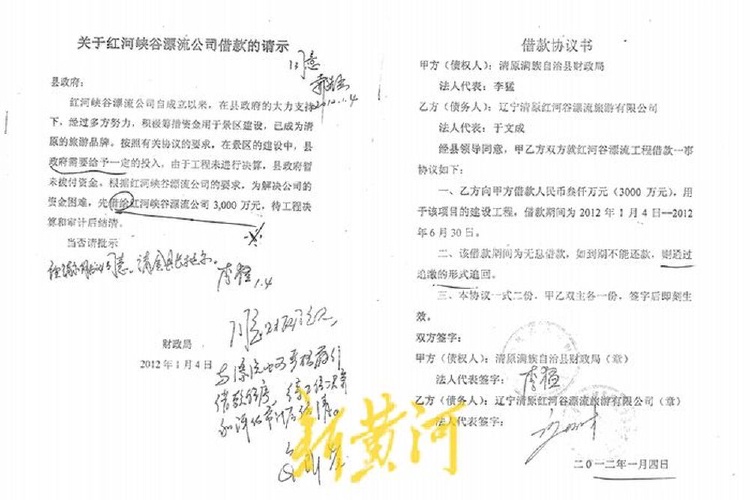 关于红河峡谷漂流公司借款的请示
同意
2012.1.4
县政府：
红河峡谷漂流公司自成立以来，在县政府的大力支持
下，经过多方努力，积极筹措资金用于景区建设，已成为清
原的旅游品牌。按照有关协议的要求，在景区的建设中，县
政府需要给予一定的投入，由于工程未进行决算，县政府暂
未拨付资金。根据红河峡谷漂流公司的要求，为解决公司的
资金困难，先借给红河峡谷漂流公司3,000万元，待工程决
算和审计后结清。
当否请批示
李猛 1.4
财政局
2012年1月4日
新黄河
借款协议书
甲方（债权人）：清原满族自治县财政局
法人代表：李猛
乙方（债务人）：辽宁清原红河谷漂流旅游有限公司
法人代表：于文成
经县领导同意，甲乙双方就红河谷漂流工程借款一事
协议如下：
一、乙方向甲方借人民币叁仟万元（3000万元），用
于该项目的建设工程，借款期间为2012年1月4日--2012
年6月30日。
二、该借款期间为无息借款，如到期不能还款，则通过
追缴的形式追回。
三、本协议一式二份，甲乙双主各一份，签字后即刻生
效。
双方签字：
甲方（债权人）：清原满族自治县财政局（章）
法人代表签字：李猛
乙方（债务人）：辽宁清原红河谷漂流旅游有限公司（章）
法人代表签字：
二0一二年一月四日